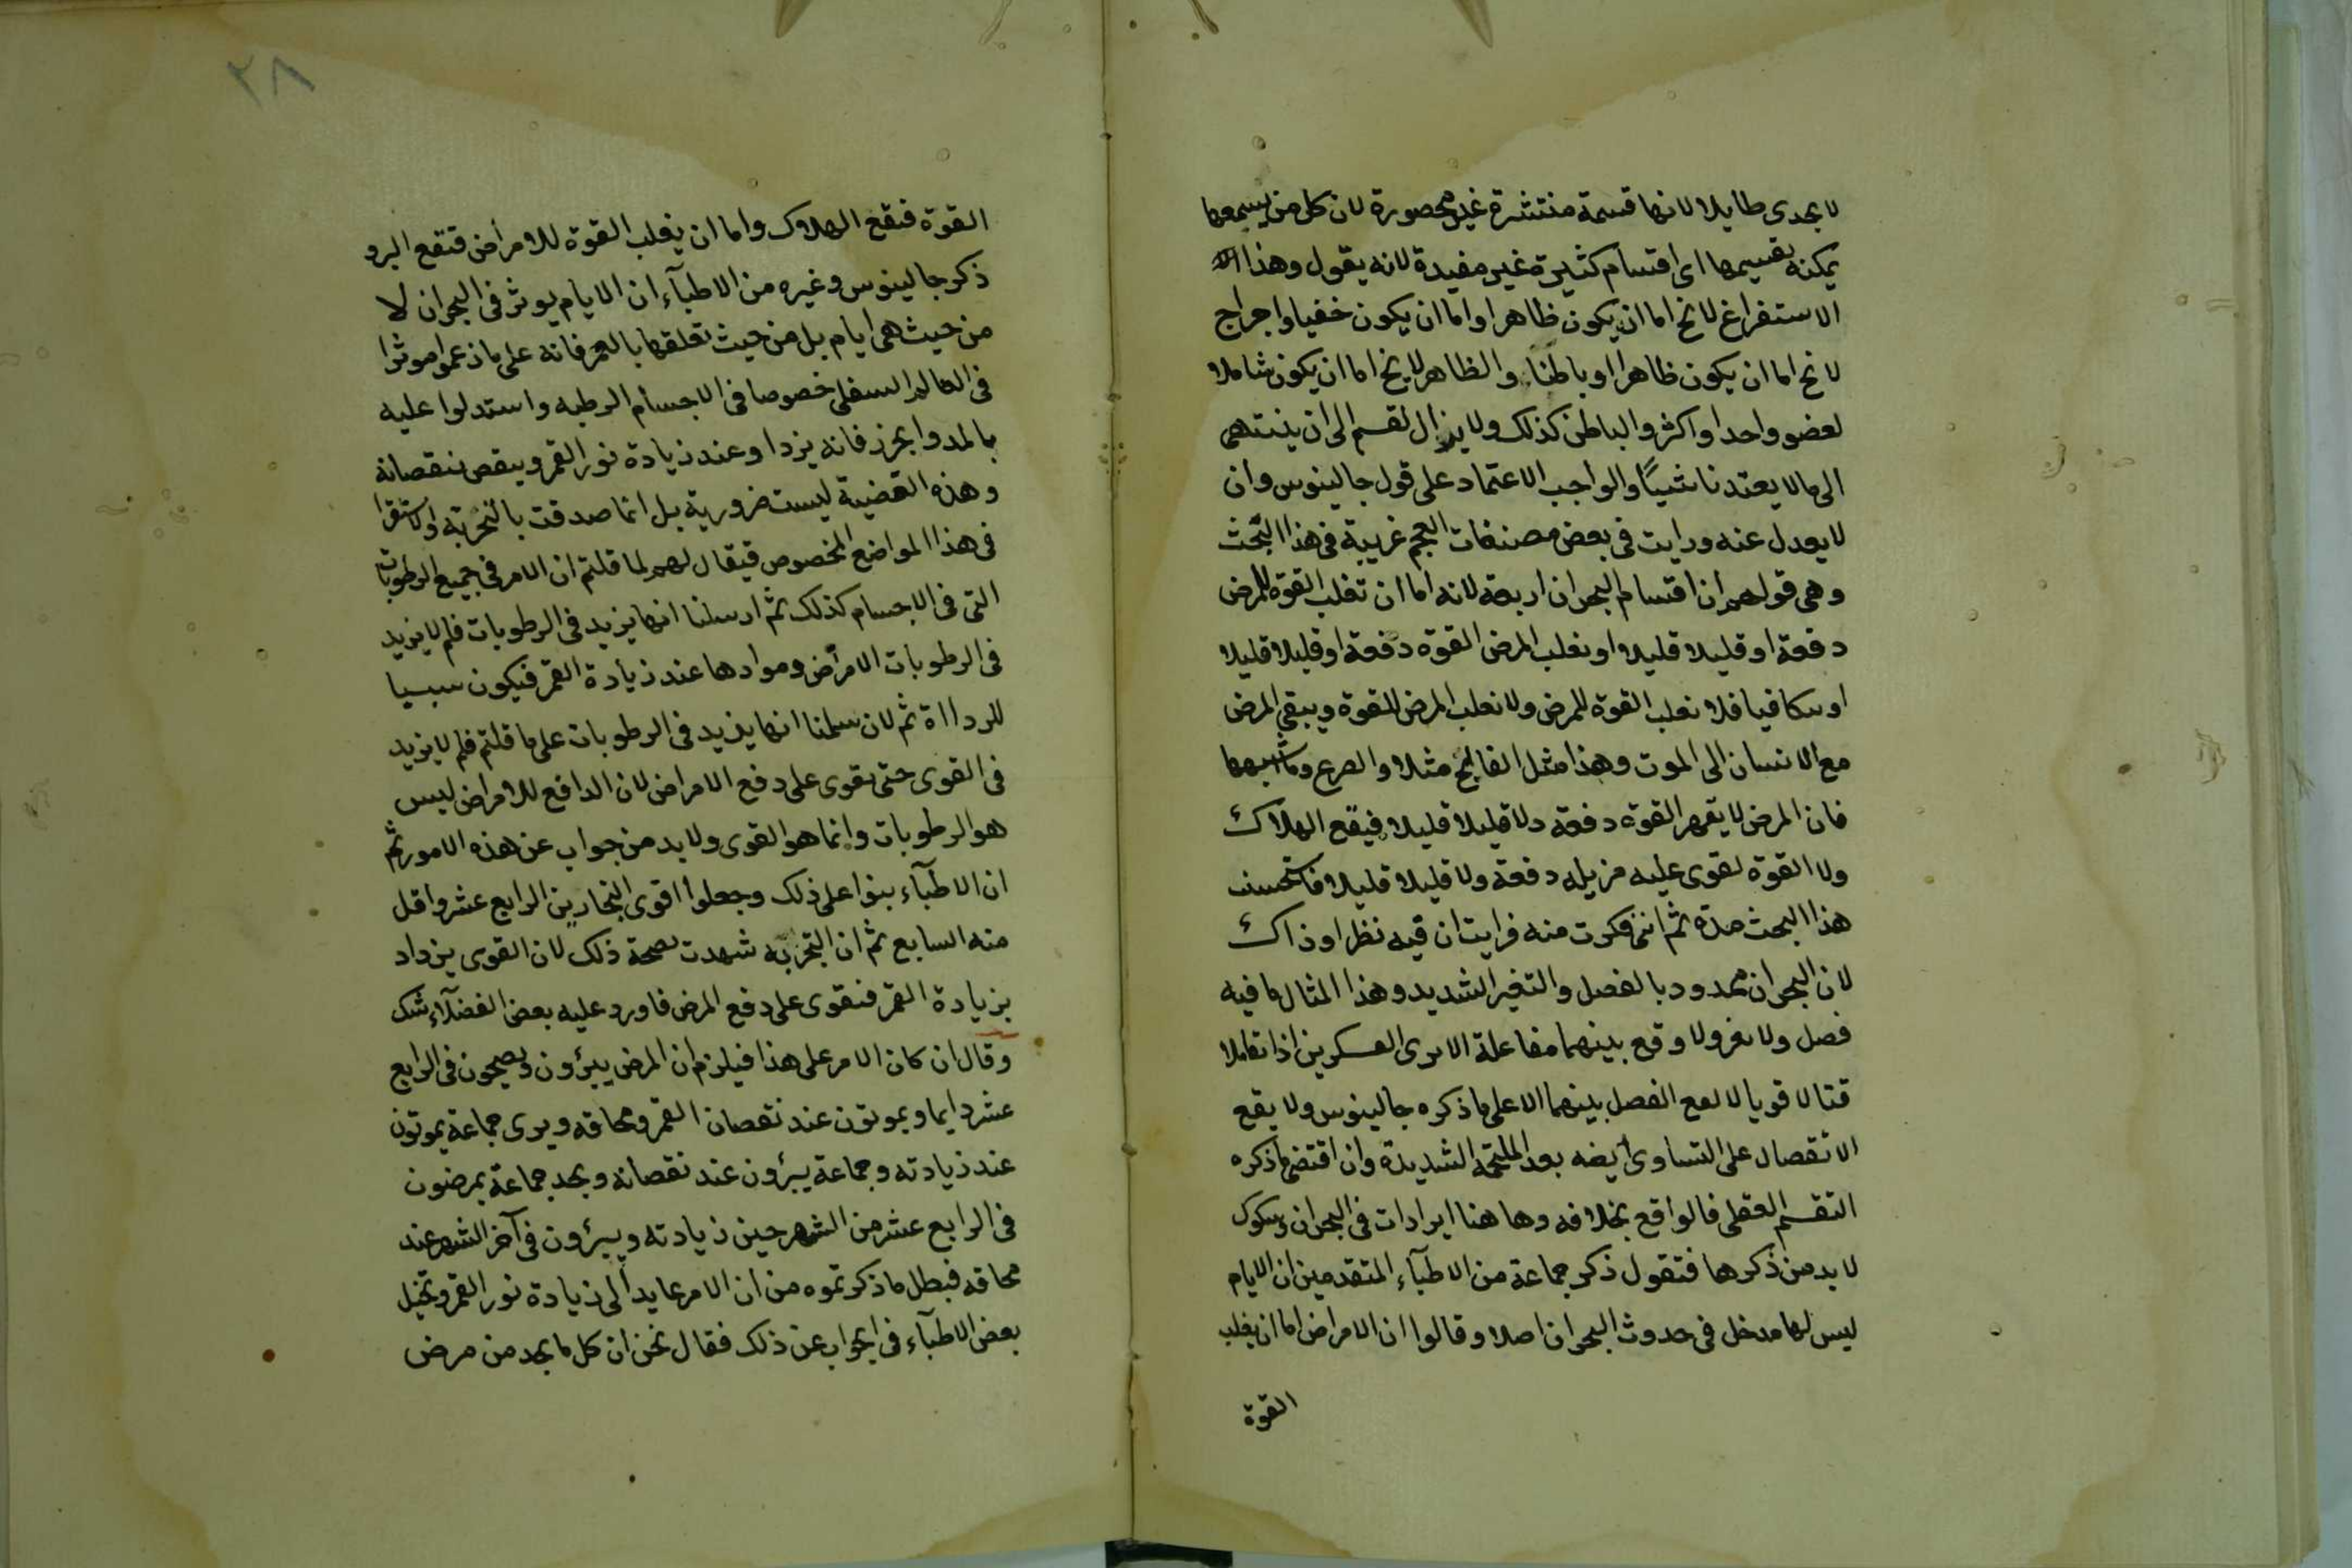 لا يجدى طايلا لانها قسمة منتشرة غير محصورة لان كل من يسمعها
يمكنه تقسيمها اى اقسام كثيرة غير مفيدة لانه يقول وهذا
الاستفراغ لا يخ اما ان يكون ظاهرا واما ان يكون خفيا واخراج
لا يخ اما ان يكون ظاهرا او باطنا والظاهر لا يخ اما ان يكون شاملا
لعضو واحد او اكثر والباطن كذلك ولا يزال لقسم الى ان ينتهى
الى ما لا يعتد نا شيئا والواجب الاعتماد على قول جالينوس وان
لا يعدل عنه ورايت فى بعض مصنفات العجم غريبة فى هذا البحث
وهى قولهم ان اقسام البحران اربعة لانه اما ان تغلب القوة للمرض
دفعة او قليلا قليلا او يغلب المرض القوة دفعة او قليلا قليلا
او يتكافيا فلا تغلب القوة للمرض ولا يغلب المرض للقوة ويبقى المرض
مع الانسان الى الموت وهذا مثل الفالج مثلا والصرع وما شبهها
فان المرض لا يقهر القوة دفعة ولا قليلا قليلا فيقع الهلاك
ولا القوة تقوى عليه فزيله دفعة ولا قليلا قليلا فاستحسنت
هذا البحث مدة ثم اننى فكرت منه فرايت ان فيه نظرا وذاك
لان البحران محدود بالفصل والتغير الشديد وهذا المثال ما فيه
فصل ولا تغر ولا وقع بينهما مفاعلة الا يرى العسكرين اذا تقاتلا
قتالا قويا لا يقع الفصل بينهما الا على ما ذكره جالينوس ولا يقع
الانفصال على التساوى ايضه بعد الملحمة الشديدة وان اقتضى ما ذكره
التقسم العقلى فالواقع بخلافه وها هنا ايرادات فى البحران وشكوك
لا بد من ذكرها فنقول ذكر جماعة من الاطباء المتقدمين ان الايام
ليس لها مدخل فى حدوث البحران اصلا وقالوا ان الامراض اما ان يغلب
القوة
٣٨
القوة فتقع الهلاك واما ان يغلب القوة للامراض فتقع البرو
ذكر جالينوس وغيره من الاطباء ان الايام يوثر فى البحران لا
من حيث هى ايام بل من حيث تعلقها بالقمر فانه على ما زعموا موثرا
فى العالم السفلى خصوصا فى الاجسام الرطبه واستدلوا عليه
بالمد والجزر فانه يزداد عند زيادة نور القمر وينقص بنقصانه
وهذه القضية ليست ضرورية بل انما صدقت بالتجربة او لاستقرا
فى هذا المواضع المخصوص فيقال لهم لما قلتم ان الامر فى جميع الرطوبات
التى فى الاجسام كذلك ثم ارسلنا انها يزيد فى الرطوبات فلم لا يزيد
فى الرطوبات الامراض وموادها عند زيادة القمر فيكون سببا
للرداءة ثم لان سلمنا انها يزيد فى الرطوبات على ما قلتم فلم لا يزيد
فى القوى حتى تقوى على دفع الامراض لان الدافع للامراض ليس
هو الرطوبات وانما هو القوى ولا بد من جواب عن هذه الامور ثم
ان الاطباء بنوا على ذلك وجعلوا اقوى البحارين الرابع عشر واقل
منه السابع ثم ان التجربه شهدت بصحة ذلك لان القوى يزداد
بزيادة القمر فتقوى على دفع المرض فاورد عليه بعض الفضلاء شك
وقال ان كان الامر على هذا فيلزم ان المرض يبرؤن ويصحون فى الرابع
عشر دايما ويموتون عند نقصان القمر ومحاقه ويرى جماعة يموتون
عند زيادته وجماعة يبرؤن عند نقصانه ونجد جماعة يمرضون
فى الرابع عشر من الشهر حين زيادته ويبرؤن فى آخر الشهر عند
محاقه فبطل ما ذكرتموه من ان الامر عايد الى زيادة نور القمر وتخيل
بعض الاطباء فى الجواب عن ذلك فقال نحن ان كل ما يجد من مرض